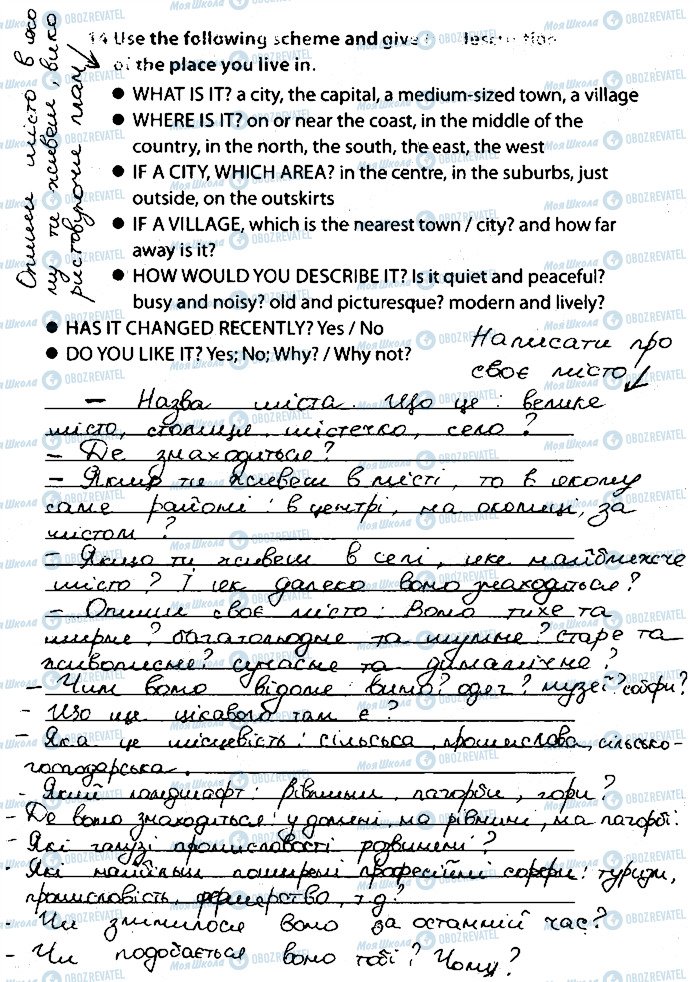 Опиши місто в яко
му ти живеш, вико
ристовуючи план
14 Use the following scheme and give
of the place you live in.
● WHAT IS IT? a city, the capital, a medium-sized town, a village
● WHERE IS IT? on or near the coast, in the middle of the
country, in the north, the south, the east, the west
● IF A CITY, WHICH AREA? in the centre, in the suburbs, just
outside, on the outskirts
● IF A VILLAGE, which is the nearest town / city? and how far
away is it?
● HOW WOULD YOU DESCRIBE IT? Is it quiet and peaceful?
busy and noisy? old and picturesque? modern and lively?
● HAS IT CHANGED RECENTLY? Yes / No
● DO YOU LIKE IT? Yes; No; Why? / Why not?
Написати про
своє місто
- Назва міста. Що це: велике
місто, столиця, містечко, село?
- Де знаходиться?
- Якщо ти живеш в місті, то в якому
саме районі: в центрі, на околиці, за
містом?
- Якщо ти живеш в селі, яке найближче
місто? І як далеко воно знаходиться?
- Опиши своє місто: Воно тихе та
мирне? багатолюдне та шумне? старе та
живописне? сучасне та динамічне?
- Чим воно відоме: вино? одяг? музеї? софи?
- Що ще цікавого там є?
- Яка це місцевість: сільська, промислова, сільсько-
господарська.
- Який ландшафт: рівнини, пагорби, гори?
- Де воно знаходиться: у долині, на рівнині, на пагорбі.
- Які галузі промисловості розвинені?
- Які найбільш поширені професійні сфери: туризм,
промисловість, фермерство, т.д?
- Чи змінилося воно за останній час?
- Чи подобається воно тобі? Чому?